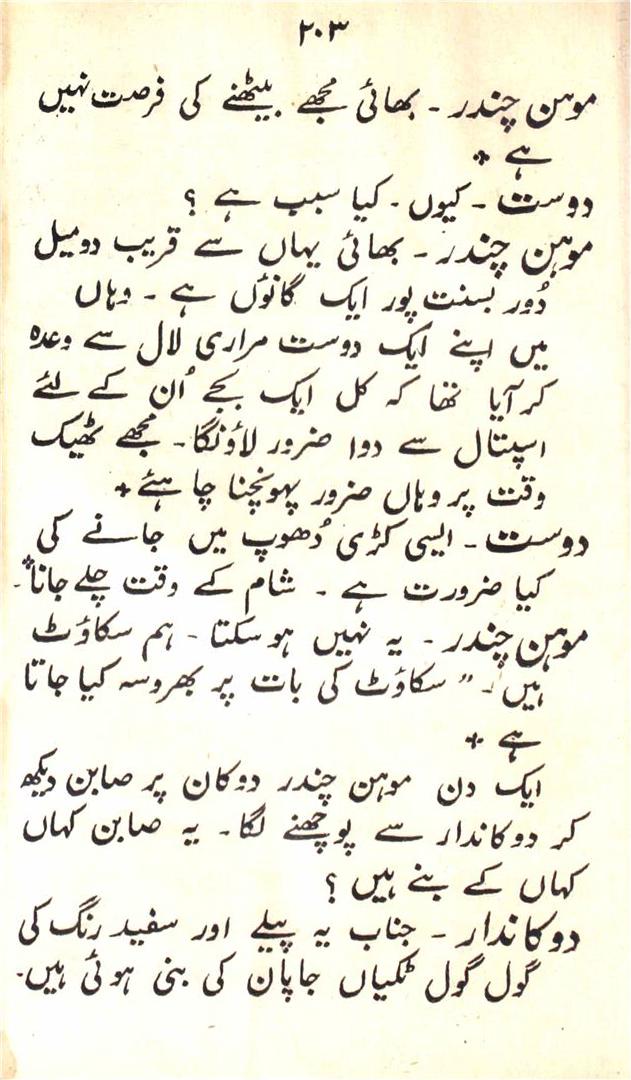 ۲۰۳
موہن چندر ۔ بھائی مجھے بیٹھنے کی فرصت نہیں
ہے *
دوست ۔ کیوں ۔ کیا سبب ہے ؟
موہن چندر ۔ بھائی یہاں سے قریب دو میل
دُور بسنت پور ایک گانؤں ہے ۔ وہاں
میں اپنے ایک دوست مراری لال سے وعدہ
کر آیا تھا کہ کل ایک بجے اُن کے لئے
اسپتال سے دوا ضرور لاؤنگا ۔ مجھے ٹھیک
وقت پر وہاں ضرور پہونچنا چاہئے *
دوست ۔ ایسی کڑی دُھوپ میں جانے کی
کیا ضرورت ہے ۔ شام کے وقت چلے جانا* ۔
موہن چندر ۔ یہ نہیں ہو سکتا ۔ ہم سکاؤٹ
ہیں ۔ " سکاؤٹ کی بات پر بھروسہ کیا جاتا
ہے *
ایک دن موہن چندر دوکان پر صابن دیکھ
کر دوکاندار سے پوچھنے لگا ۔ یہ صابن کہاں
کہاں کے بنے ہیں ؟
دوکاندار ۔ جناب یہ پیلے اور سفید رنگ کی
گول گول ٹکیاں جاپان کی بنی ہوئی ہیں ۔